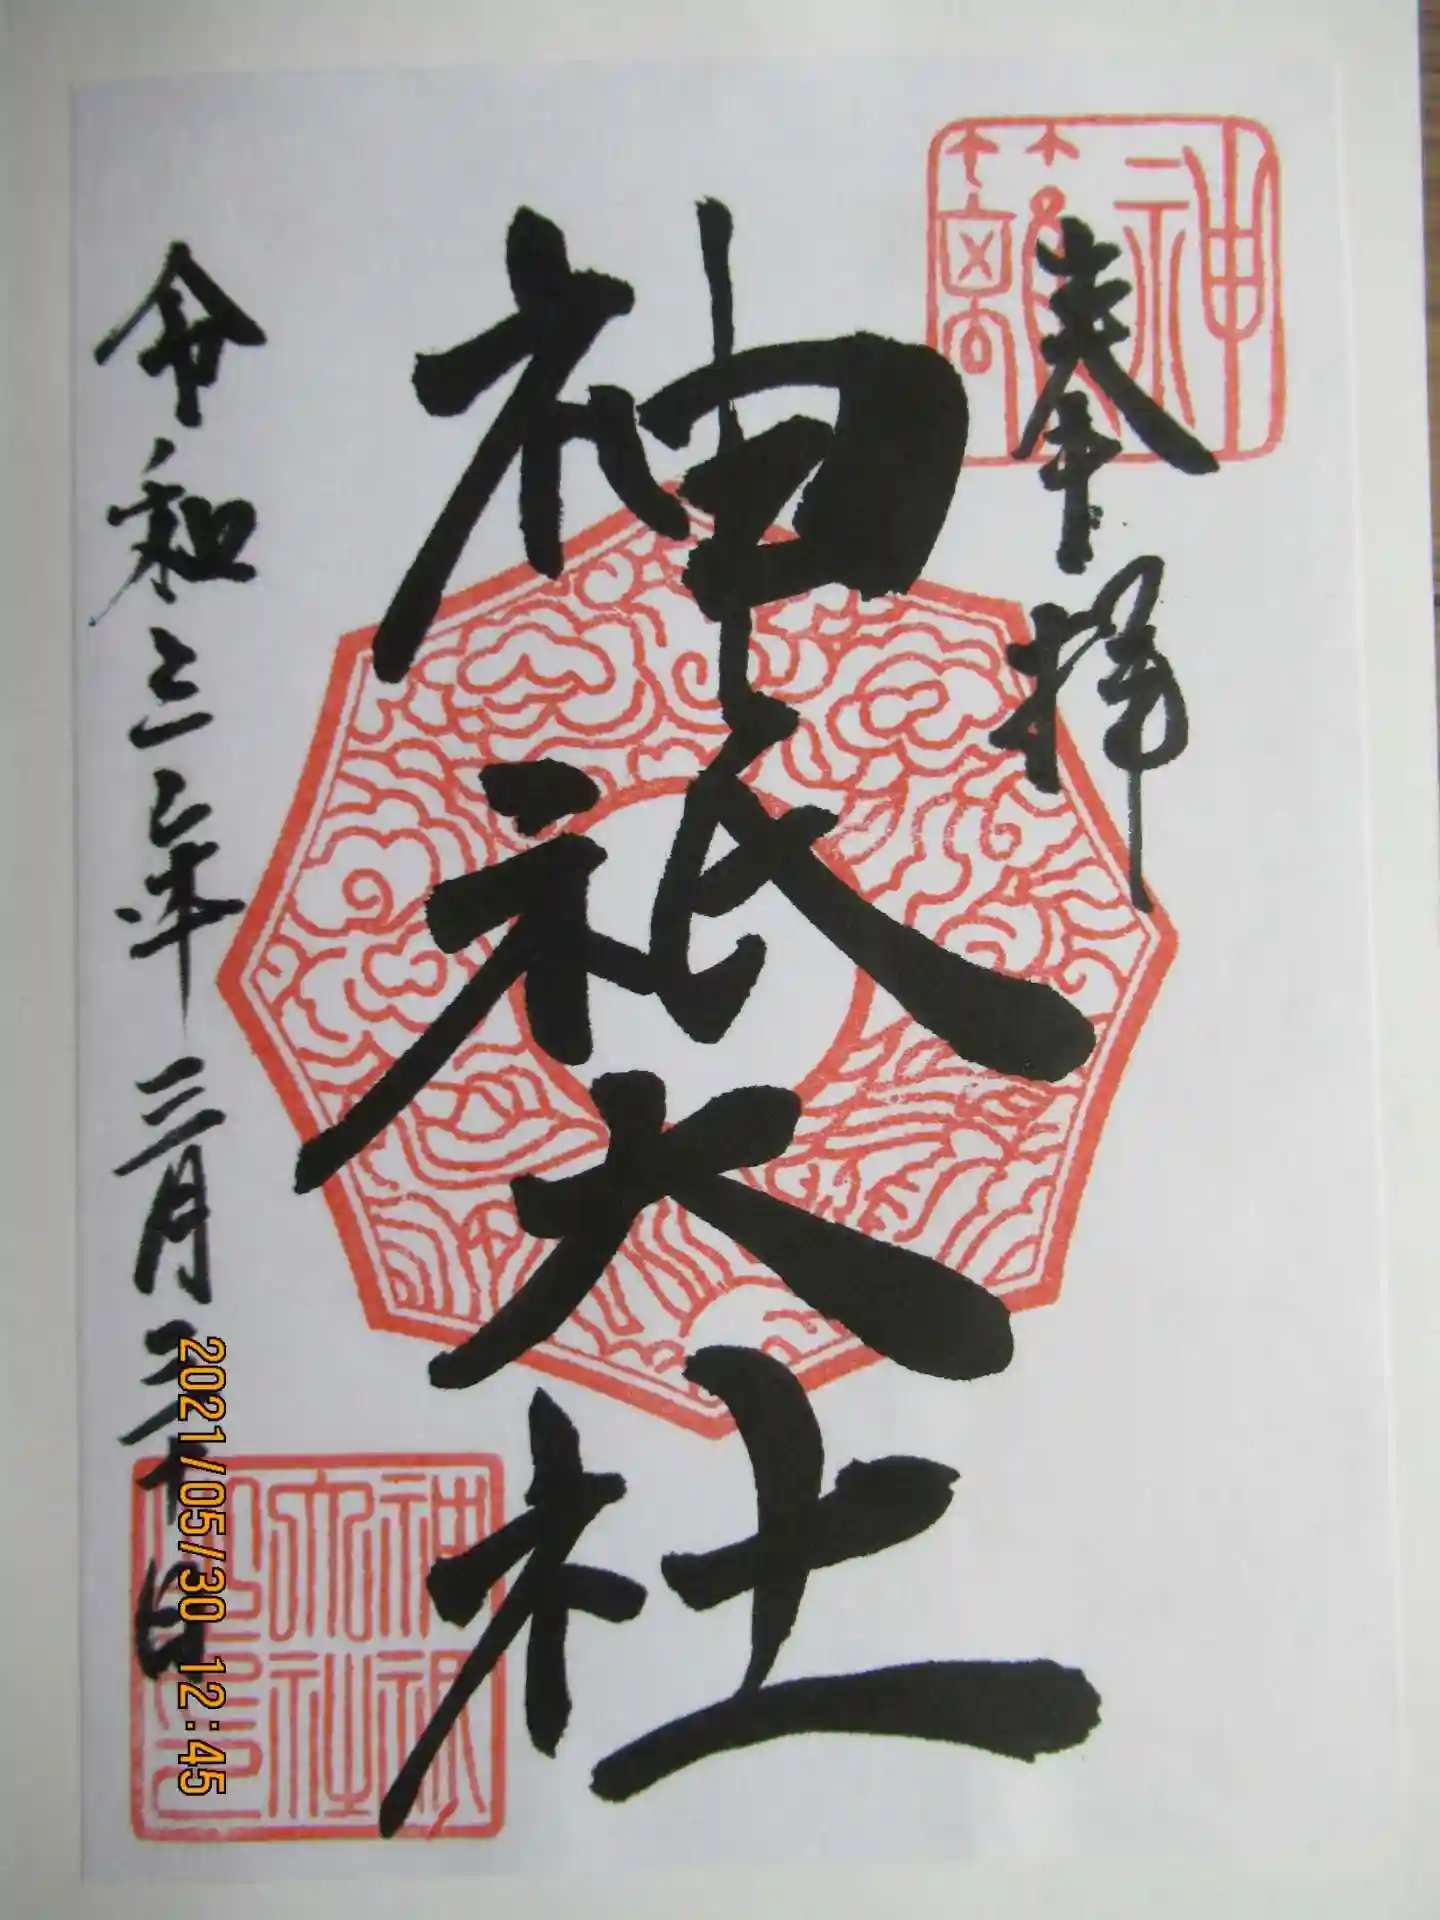 奉拝
神祇大社
令和三年三月三十日
神祇大社之印
2021/05/30 12:45